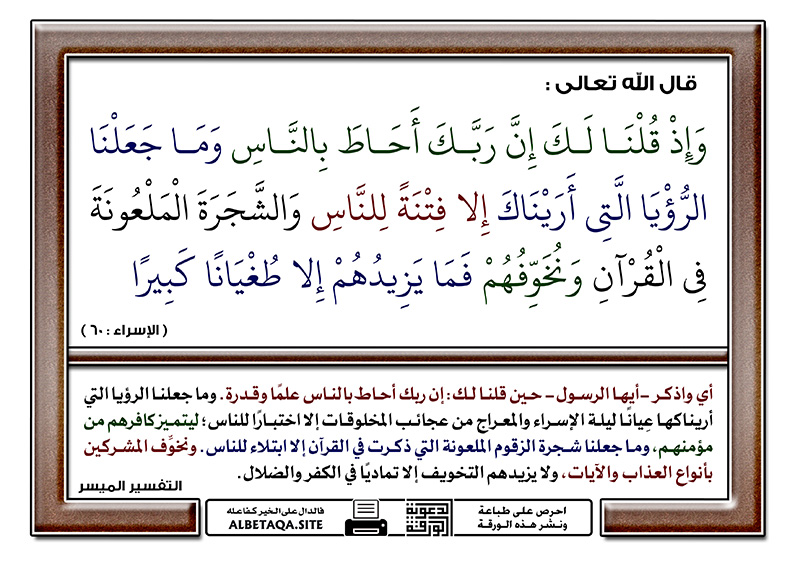 قال الله تعالى :
وَإِذْ قُلْنَا لَكَ إِنَّ رَبَّكَ أَحَاطَ بِالنَّاسِ وَمَا جَعَلْنَا
الرُّؤْيَا الَّتِي أَرَيْنَاكَ إِلا فِتْنَةً لِلنَّاسِ وَالشَّجَرَةَ الْمَلْعُونَةَ
فِي الْقُرْآنِ وَنُخَوِّفُهُمْ فَمَا يَزِيدُهُمْ إِلا طُغْيَانًا كَبِيرًا
( الإسراء : ٦٠ )
أي واذكر -أيها الرسول- حين قلنا لك: إن ربك أحاط بالناس علمًا وقدرة. وما جعلنا الرؤيا التي
أريناكها عِيانًا ليلة الإسراء والمعراج من عجائب المخلوقات إلا اختبارًا للناس؛ ليتميز كافرهم من
مؤمنهم، وما جعلنا شجرة الزقوم الملعونة التي ذكرت في القرآن إلا ابتلاء للناس. ونخوِّف المشركين
بأنواع العذاب والآيات، ولا يزيدهم التخويف إلا تماديًا في الكفر والضلال.
التفسير الميسر
احرص على طباعة
ونشر هذه الورقة
الدعوية
الورقة
فالدال على الخير كفاعله
ALBETAQA.SITE